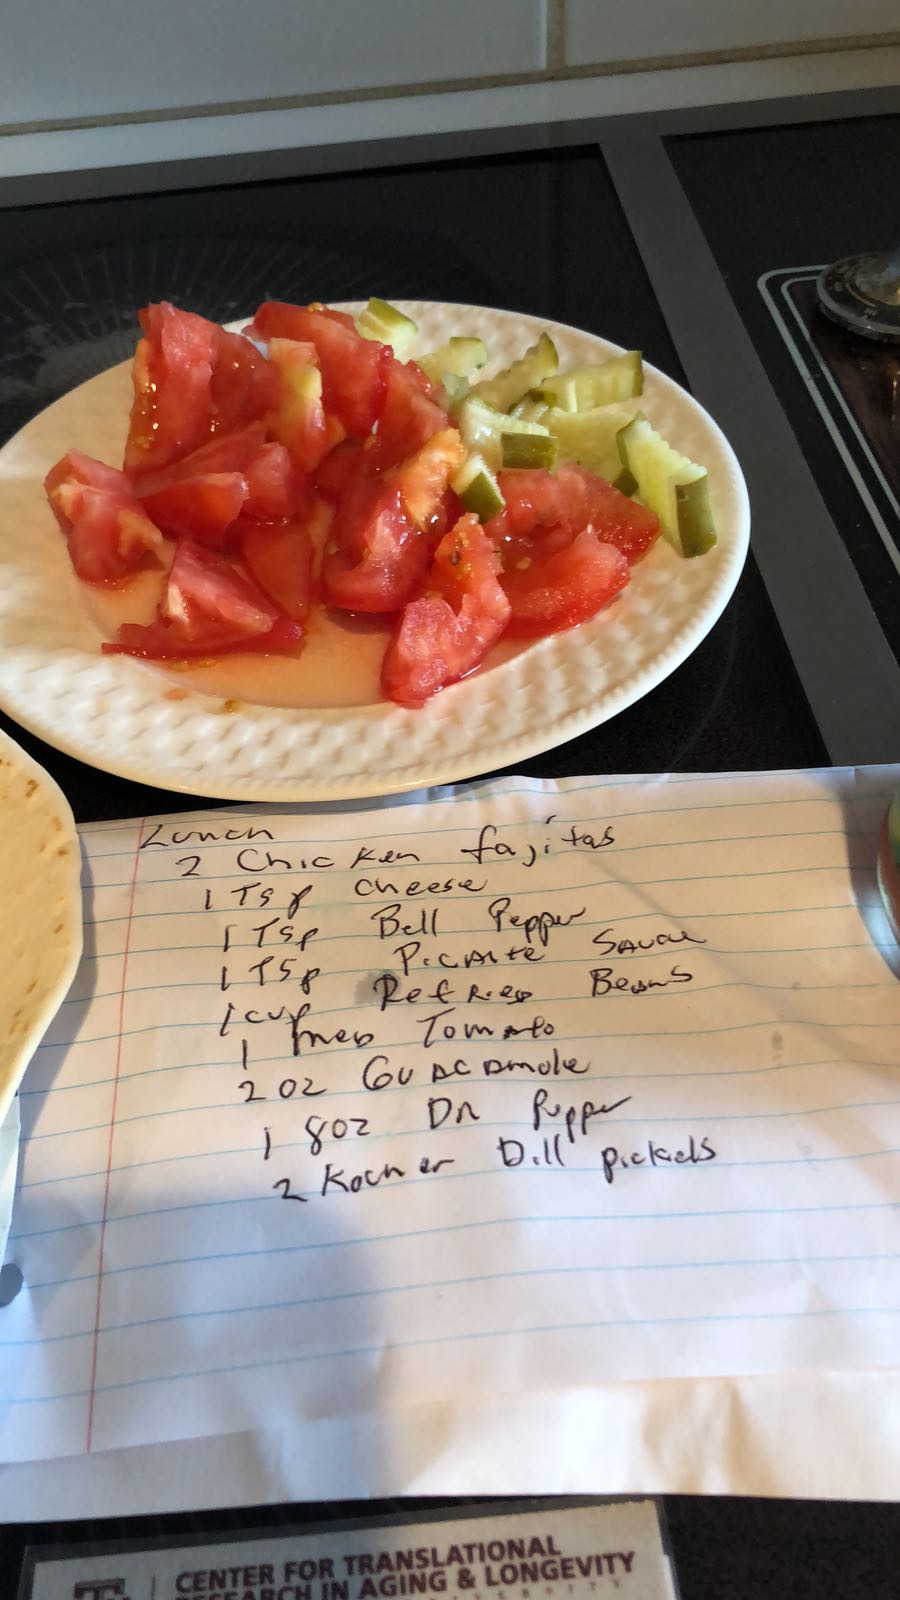 Lunch
2 Chicken fajitas
1 Tsp cheese
1 Tsp Bell Pepper
1 Tsp Picante Sauce
1 cup Refried Beans
1 med Tomato
2 oz Guacamole
1 8oz Dr Pepper
2 Kocher Dill pickels
CENTER FOR TRANSLATIONAL
RESEARCH IN AGING & LONGEVITY